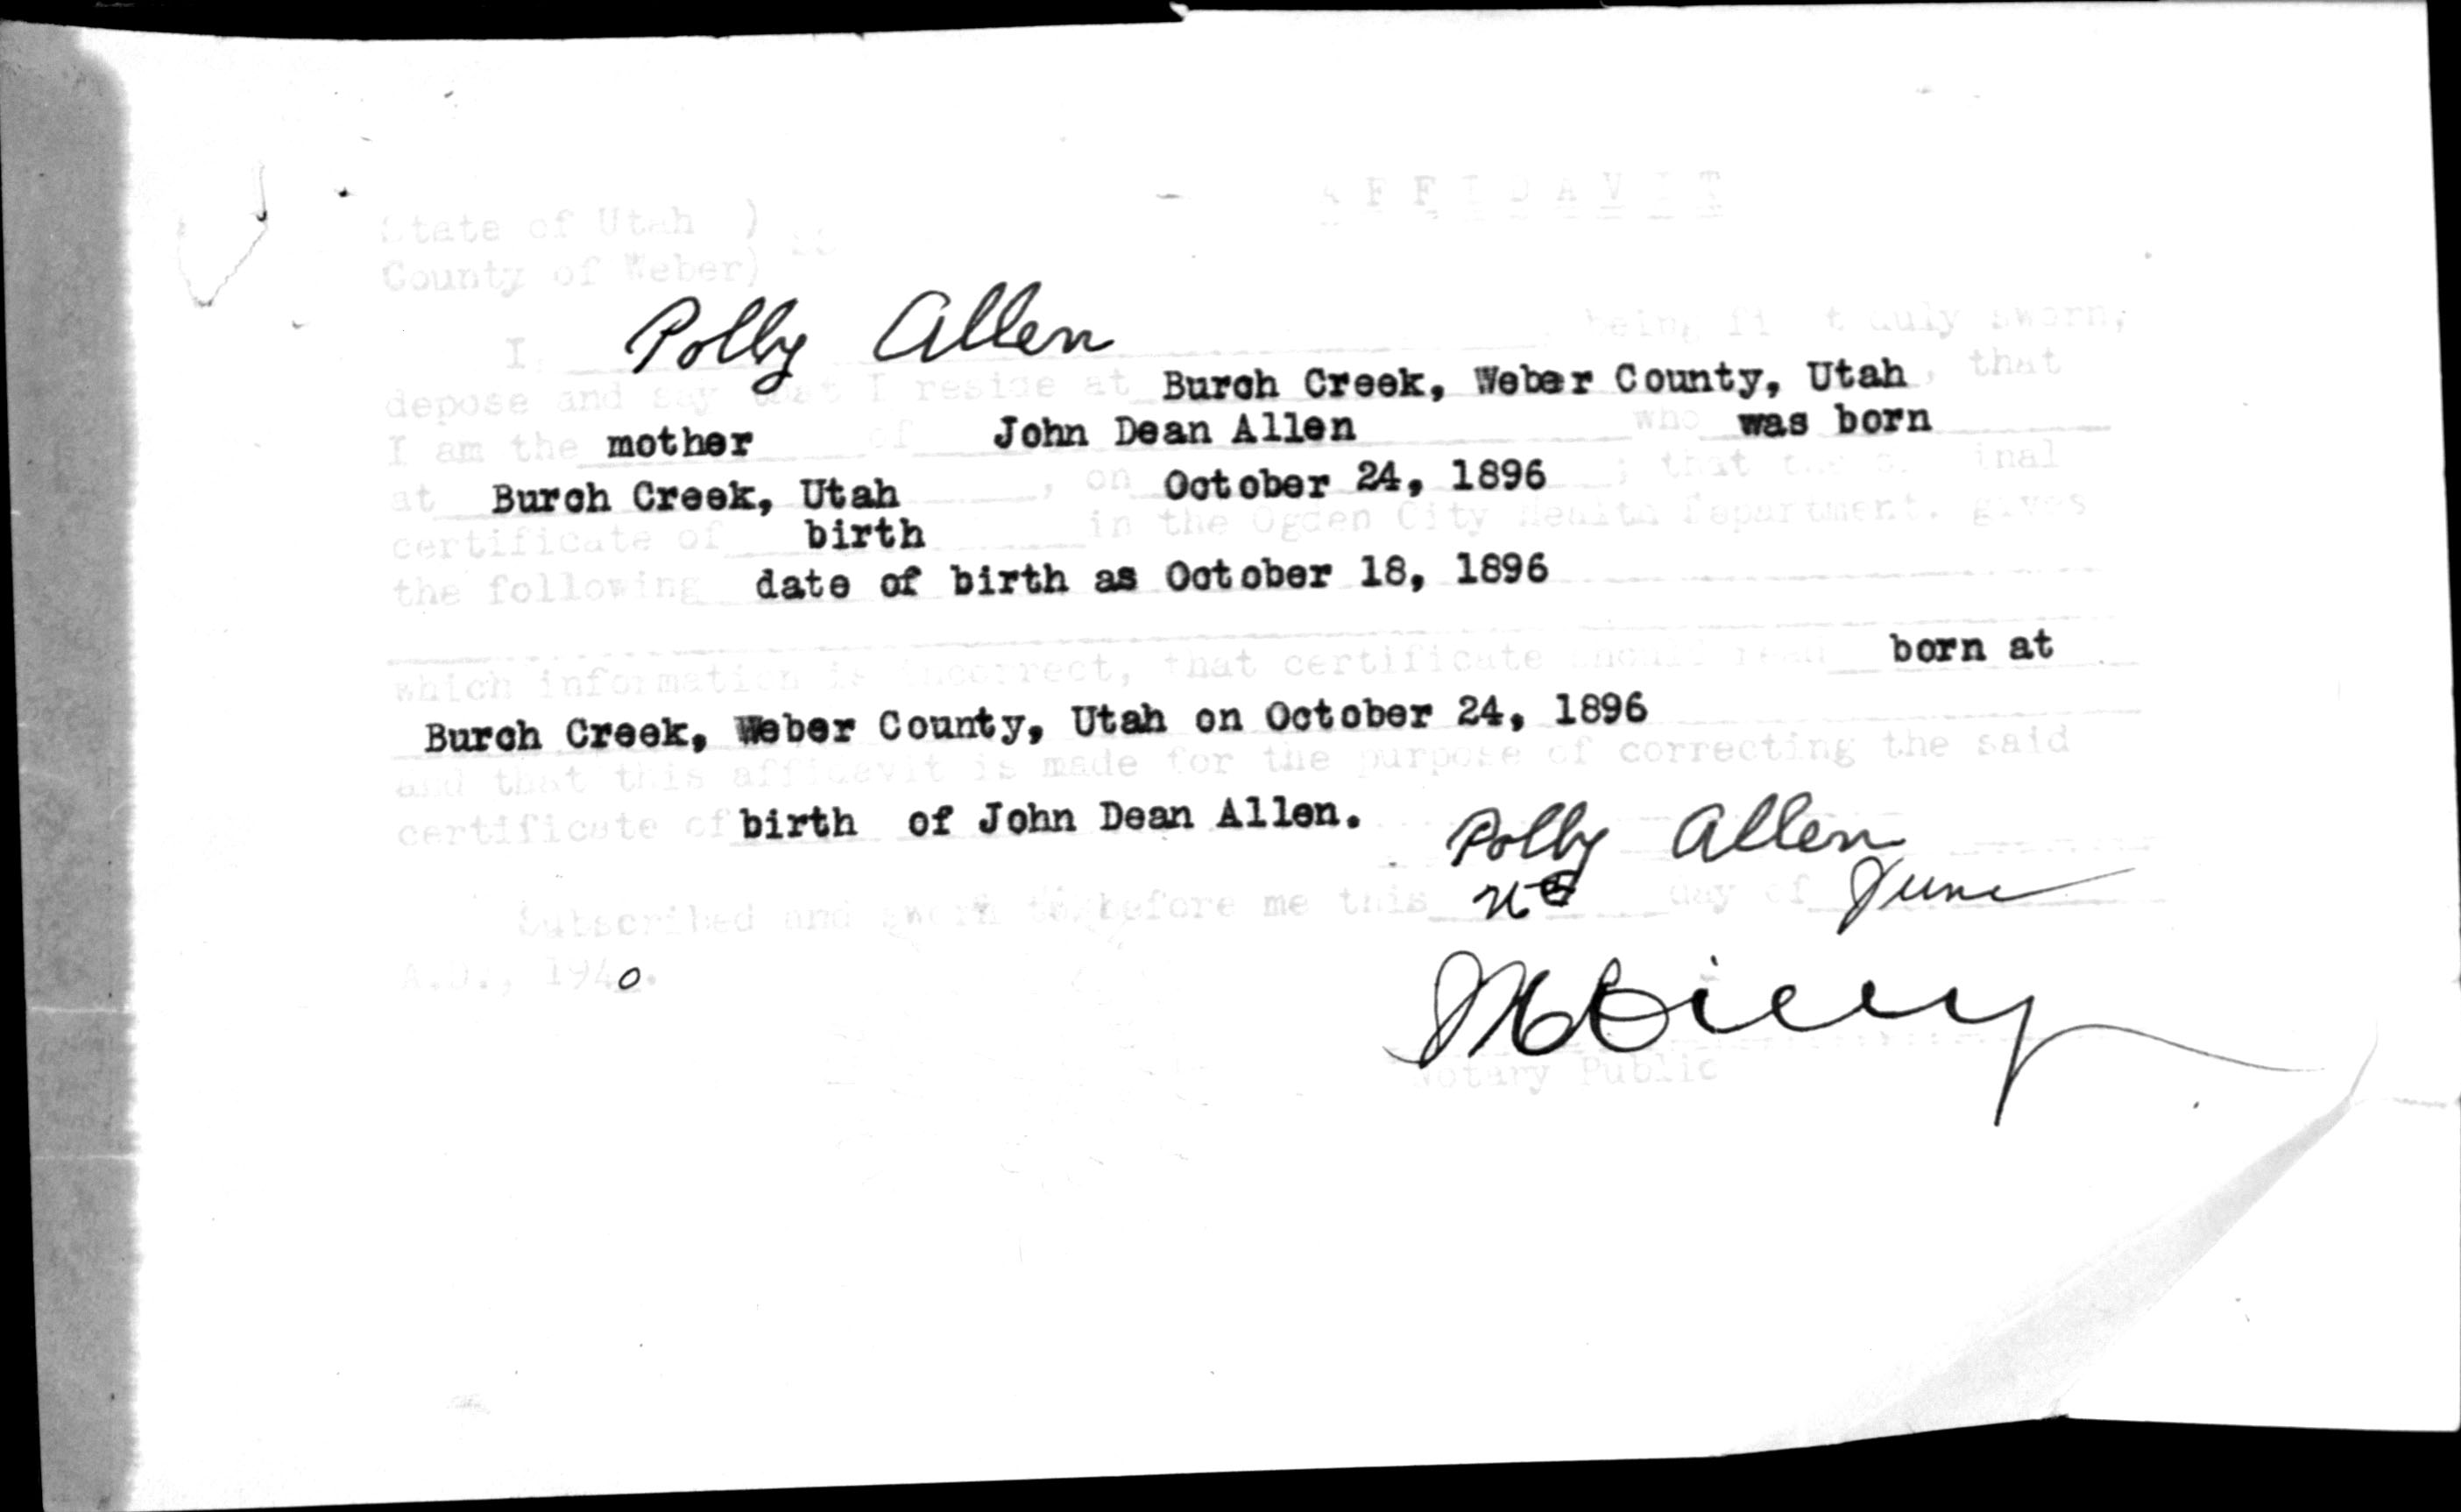 AFFIDAVIT
State of Utah )
County of Weber) ss
I, Polly Allen, being first duly sworn,
depose and say that I reside at Burch Creek, Weber County, Utah, that
I am the mother of John Dean Allen who was born
at Burch Creek, Utah, on October 24, 1896; that the original
certificate of birth in the Ogden City Health Department. gives
the following date of birth as October 18, 1896
which information is incorrect, that certificate should read born at
Burch Creek, Weber County, Utah on October 24, 1896
and that this affidavit is made for the purpose of correcting the said
certificate of birth of John Dean Allen.
Polly Allen
Subscribed and sworn to before me this day of June
A.D., 1940.
Notary Public